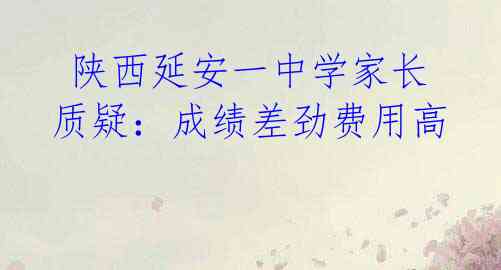 陕西延安一中学家长
质疑：成绩差劲费用高